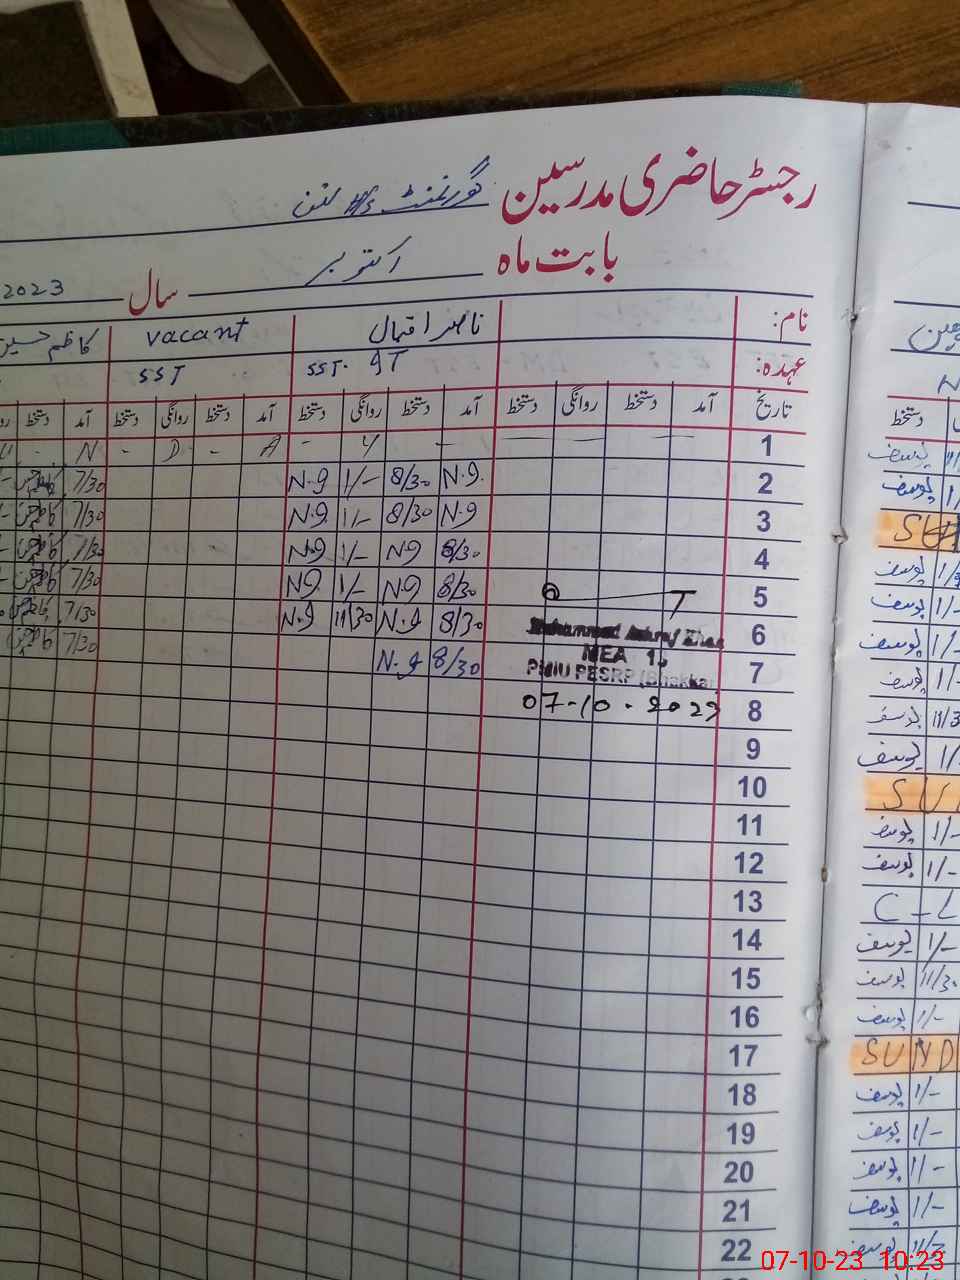 رجسٹر حاضری مدرسین گورنمنٹ
بابت ماہ اکتوبر سال 2023
نام: ناصر اقبال vacant کاظم حسین
عہدہ: SST. IT SST
تاریخ آمد دستخط روانگی دستخط آمد دستخط روانگی دستخط آمد دستخط روانگی دستخط آمد دستخط
1 — — — Y — A - D - N -
2 N.I 8/30 1/- N.I 7/30
3 N.I 8/30 1/- N.I 7/30
4 8/30 N.I 1/- N.I 7/30
5 8/30 N.I 1/- N.I 7/30
6 8/30 N.I 11/30 N.I 7/30
7 8/30 N.I 7/30
MEA
PMIU PESRP (Bhakkar)
07-10-2023
8
9
10
11
12
13
14
15
16
17
18
19
20
21
22
دستخط
یوسف
یوسف 1/
SUN
یوسف
یوسف 1/-
یوسف 1/-
یوسف 1/-
یوسف 11/3
یوسف 1/
SU
یوسف 1/-
یوسف 1/-
C-L
یوسف 1/-
یوسف 11/30
یوسف 1/-
SUND
یوسف 1/-
یوسف 1/-
یوسف 1/-
یوسف 1/-
یوسف 11/3
07-10-23 10:23